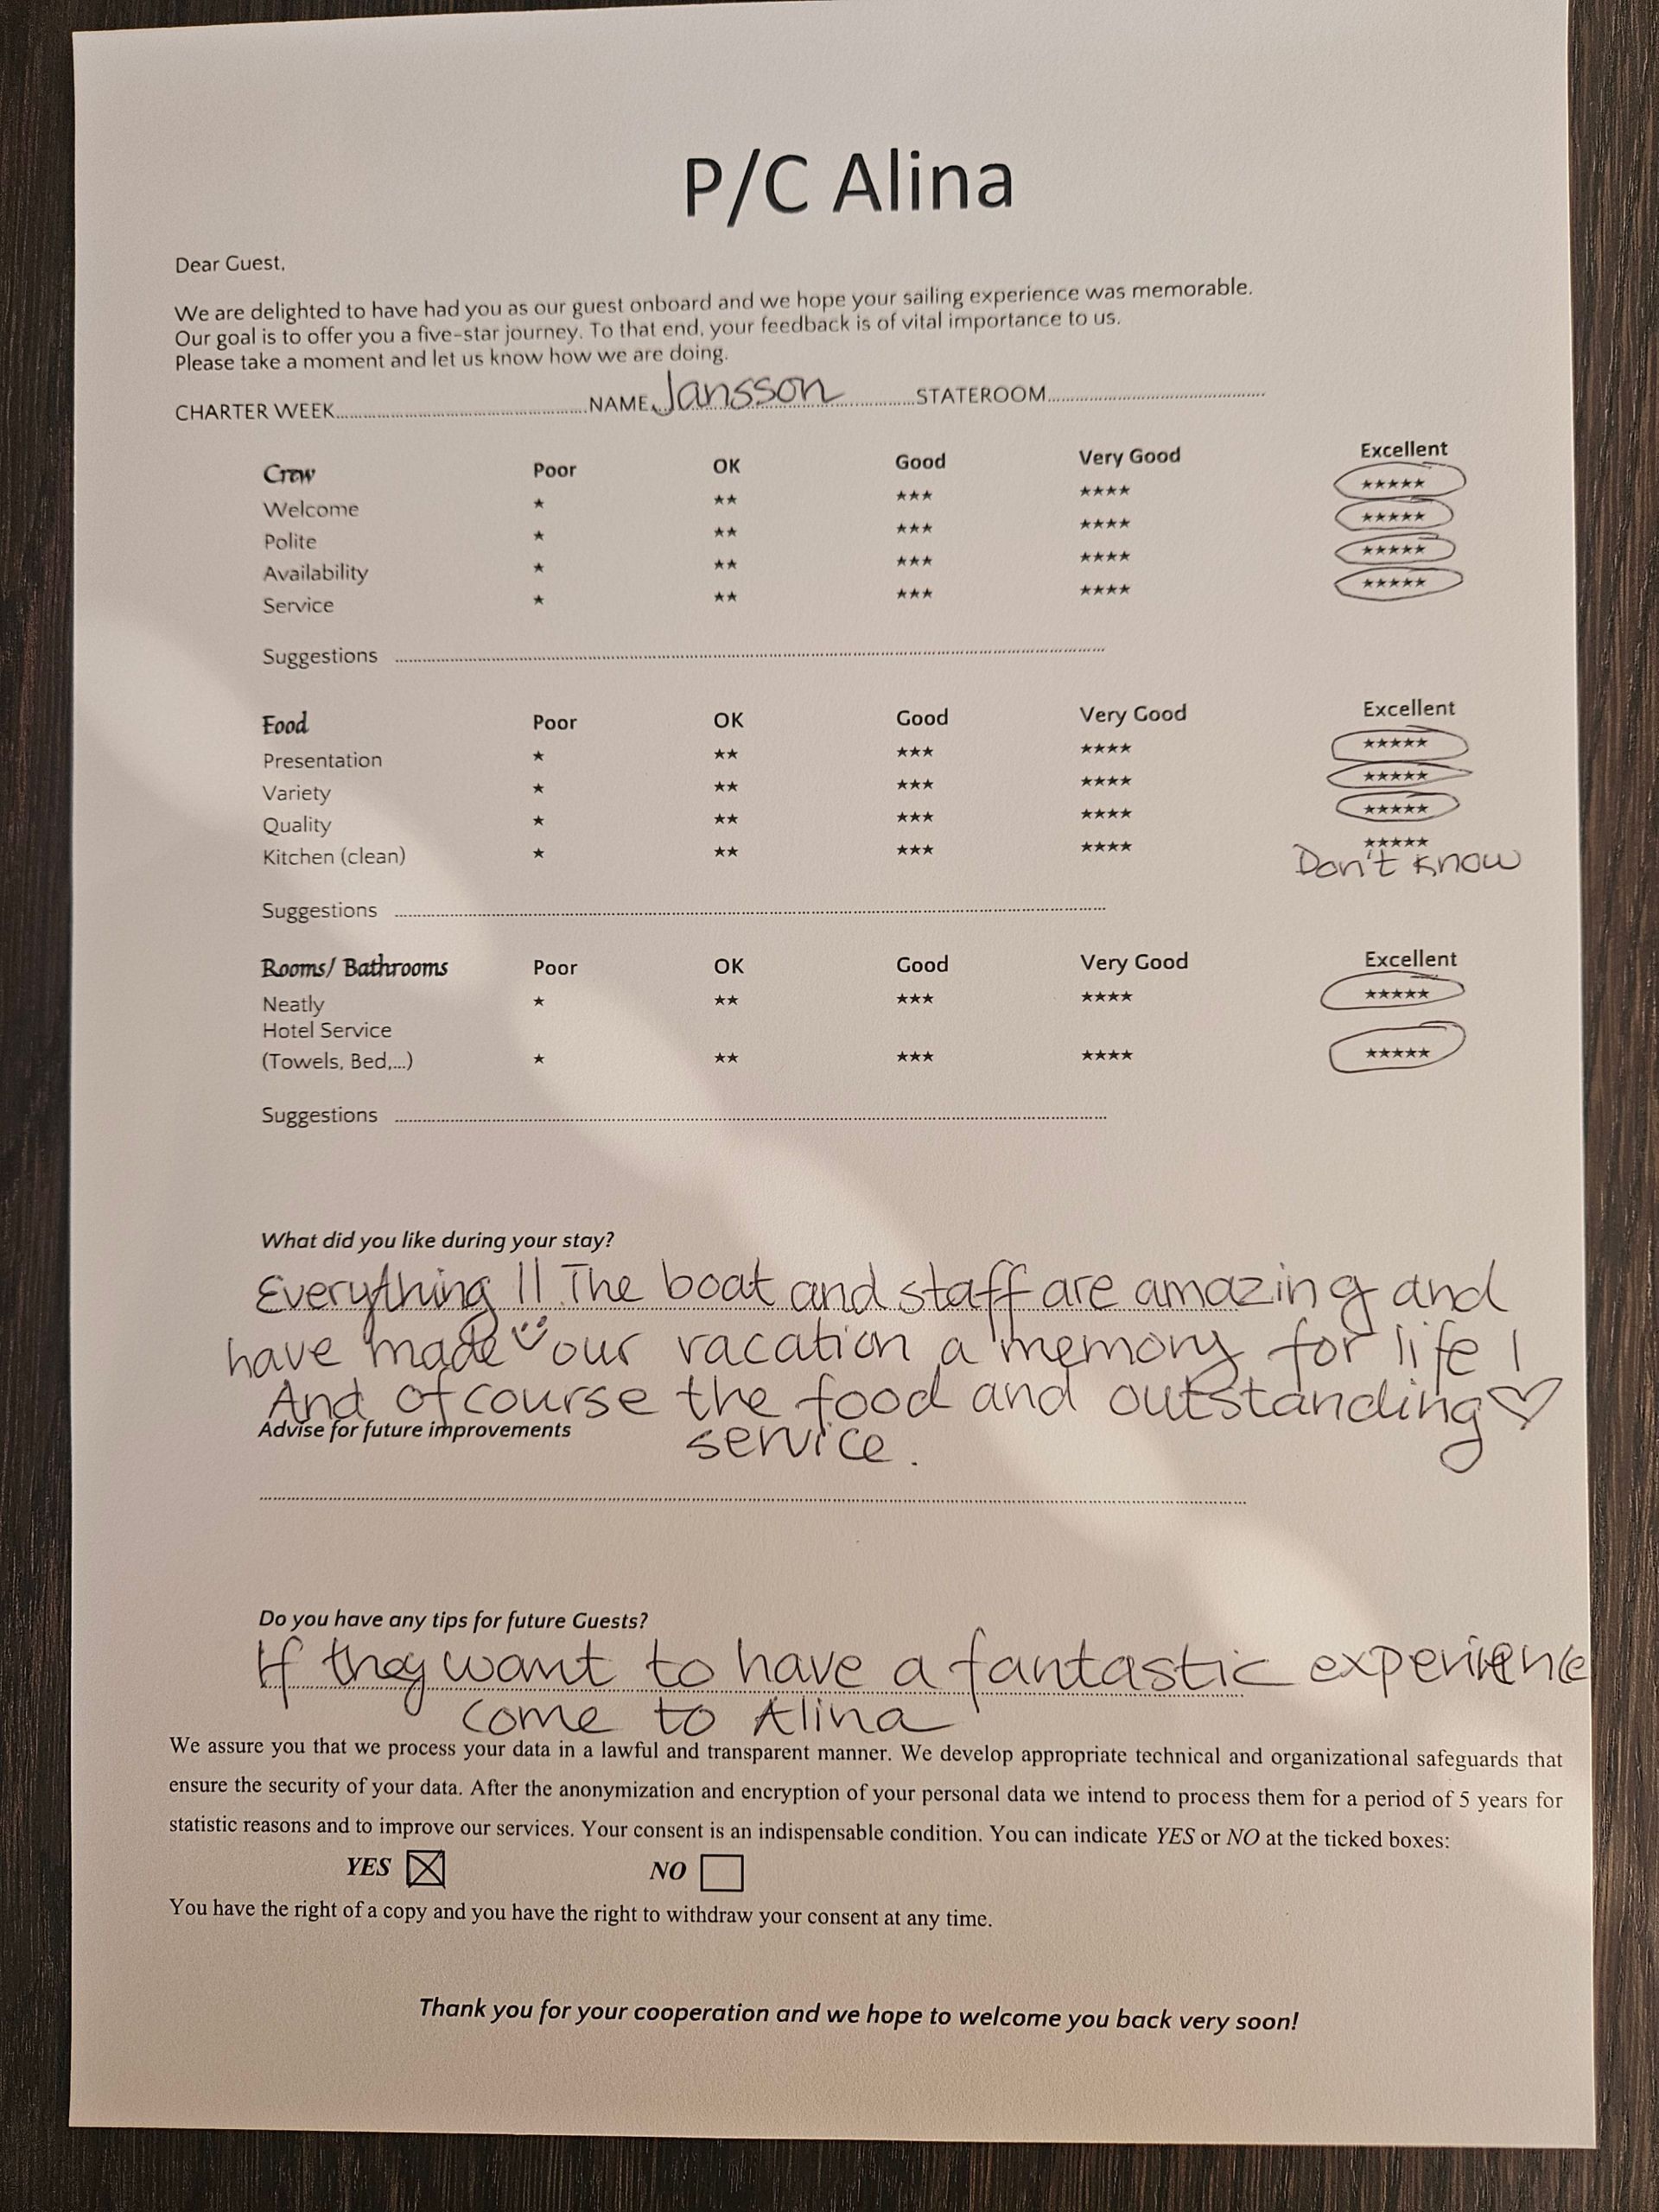 P/C Alina
Dear Guest,
We are delighted to have had you as our guest onboard and we hope your sailing experience was memorable.
Our goal is to offer you a five-star journey. To that end, your feedback is of vital importance to us.
Please take a moment and let us know how we are doing.
CHARTER WEEK........ NAME Jansson ........STATEROOM........
Crew Poor OK Good Very Good Excellent
Welcome ★ ★★ ★★★ ★★★★ ★★★★★
Polite ★ ★★ ★★★ ★★★★ ★★★★★
Availability ★ ★★ ★★★ ★★★★ ★★★★★
Service ★ ★★ ★★★ ★★★★ ★★★★★
Suggestions ........
Food Poor OK Good Very Good Excellent
Presentation ★ ★★ ★★★ ★★★★ ★★★★★
Variety ★ ★★ ★★★ ★★★★ ★★★★★
Quality ★ ★★ ★★★ ★★★★ ★★★★★
Kitchen (clean) ★ ★★ ★★★ ★★★★ ★★★★★
Don't know
Suggestions ........
Rooms/ Bathrooms Poor OK Good Very Good Excellent
Neatly ★ ★★ ★★★ ★★★★ ★★★★★
Hotel Service
(Towels, Bed,...) ★ ★★ ★★★ ★★★★ ★★★★★
Suggestions ........
What did you like during your stay?
Everything !! The boat and staff are amazing and
have made our vacation a memory for life !
And ofcourse the food and outstanding ♡
service.
Advise for future improvements
Do you have any tips for future Guests?
If they want to have a fantastic experience
come to Alina
We assure you that we process your data in a lawful and transparent manner. We develop appropriate technical and organizational safeguards that
ensure the security of your data. After the anonymization and encryption of your personal data we intend to process them for a period of 5 years for
statistic reasons and to improve our services. Your consent is an indispensable condition. You can indicate YES or NO at the ticked boxes:
YES ☒ NO ☐
You have the right of a copy and you have the right to withdraw your consent at any time.
Thank you for your cooperation and we hope to welcome you back very soon!